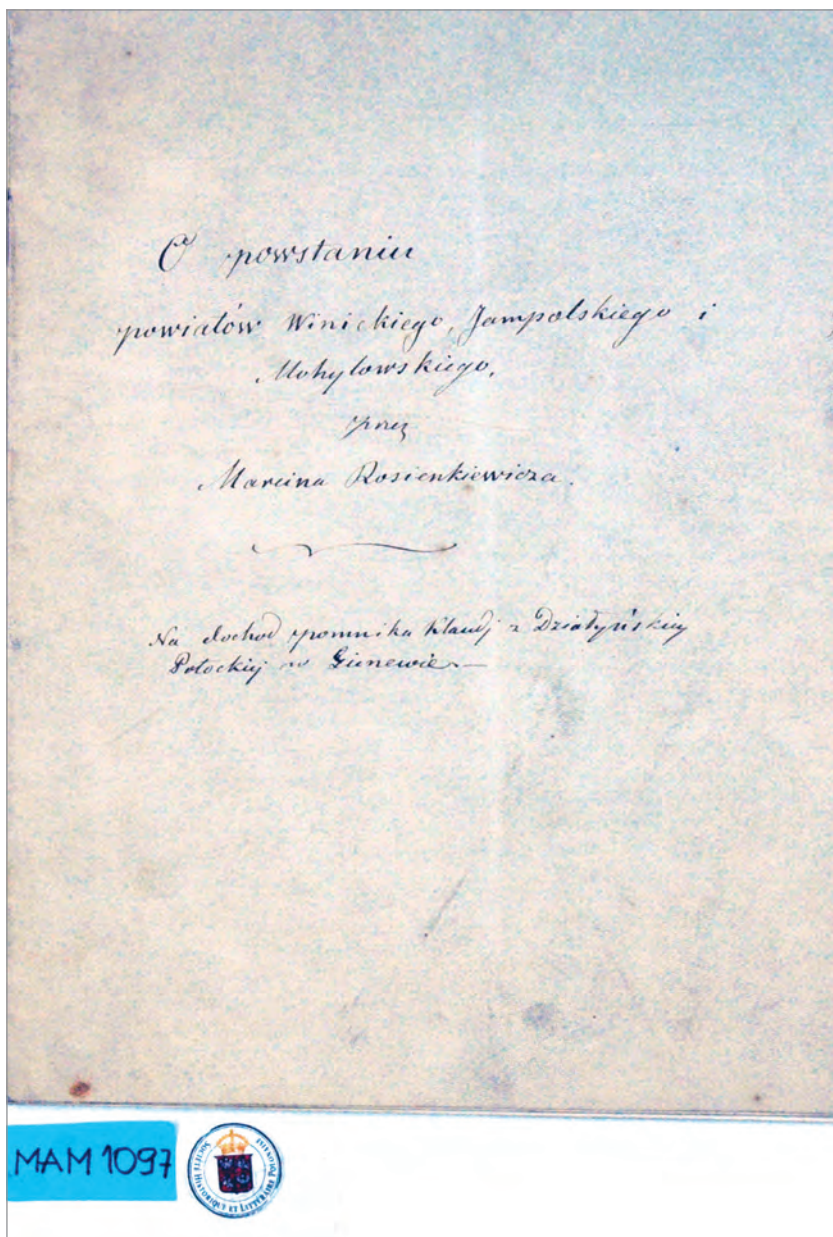 O powstaniu
powiatów Winickiego, Jampolskiego i
Mohylowskiego,
przez
Marcina Rosienkiewicza.
Na dochod pomnika Klaudj z Działyńskiej
Potockiej w Genewie.—
MAM 1097
SOCIÉTÉ HISTORIQUE ET LITTÉRAIRE POLONAISE